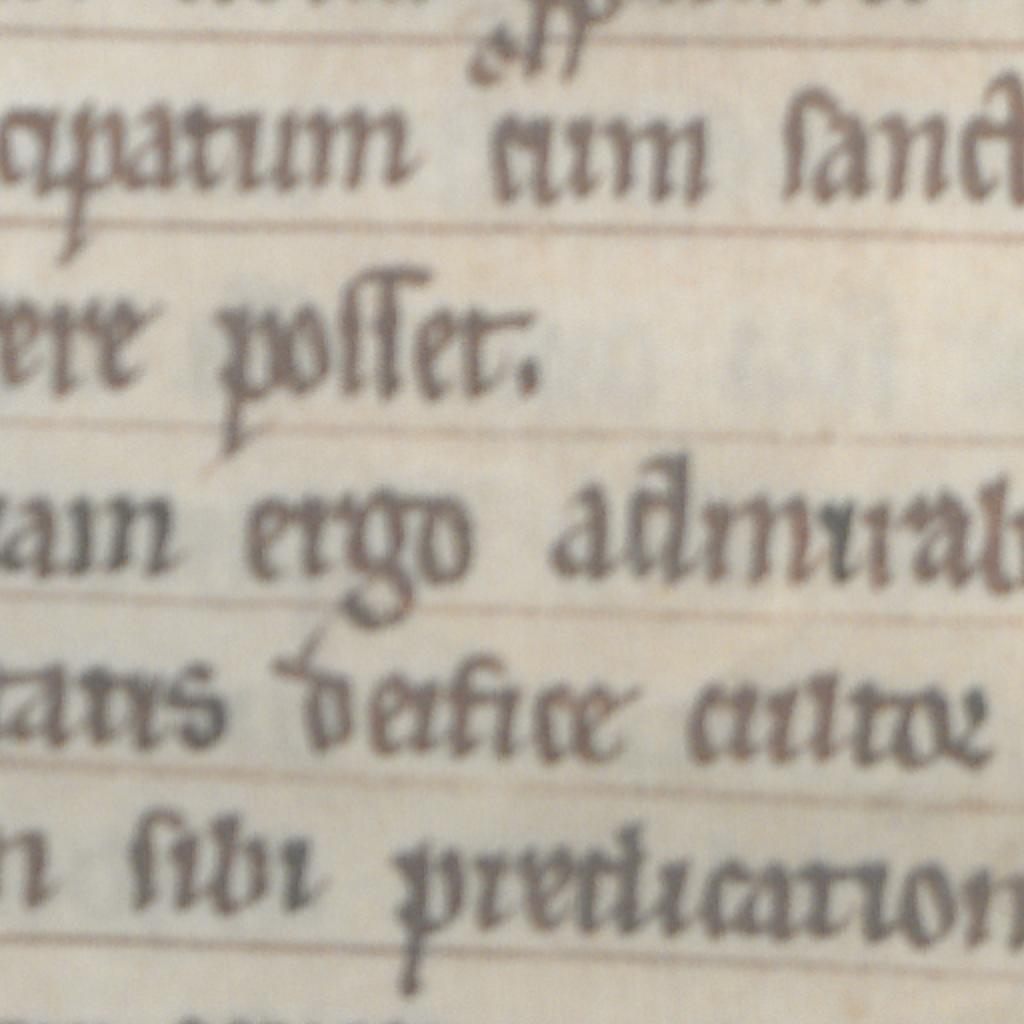 cipatum cum sanct
ere posset.
tam ergo admirab
tatis deifice cultor
n sibi predication